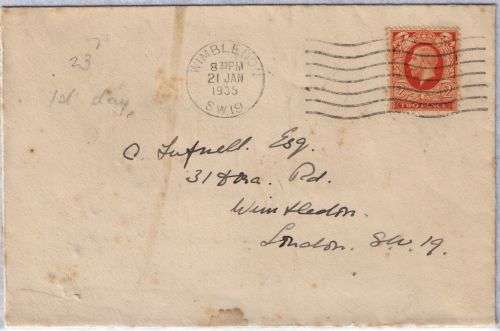 23
1st day.
WIMBLEDON
8 30 PM
21 JAN
1935
S.W.19
TWO PENCE
C. Tufnell. Esq.
31 Dora. Rd.
Wimbledon.
London. S.W. 19.